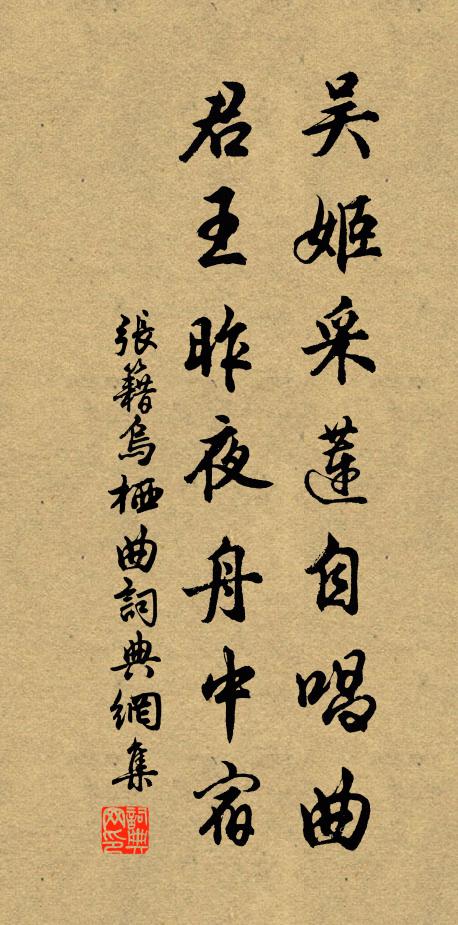 吴姬采蓮自唱曲
君王昨夜舟中宿
張籍烏栖曲詞典網集
詞典網印